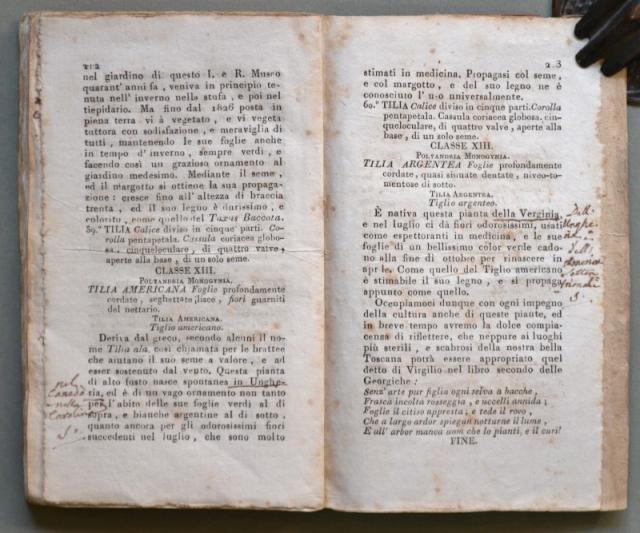 212
nel giardino di questo I. e R. Museo
quarant' anni fa , veniva in principio te-
nuta nell' inverno nella stufa , e poi nel
tiepidario. Ma fino dal 1826 posta in
piena terra vi à vegetato , e vi vegeta
tuttora con sodisfazione , e meraviglia di
tutti , mantenendo le sue foglie anche
in tempo d' inverno , sempre verdi , e
facendo così un grazioso ornamento al
giardino medesimo. Mediante il seme ,
ed il margotto si ottiene la sua propaga-
zione : cresce fino all' altezza di braccia
trenta , ed il suo legno è durissimo , e
colorito , come quello del Taxus Baccata.
59.° TILIA Calice diviso in cinque parti. Co-
rolla pentapetala. Cassula coriacea globo-
sa , cinqueloculare , di quattro valve ,
aperte alla base , di un solo seme.
CLASSE XIII.
Polyandria Monogynia.
TILIA AMERICANA Foglie profondamente
cordate , seghettate , lisce , fiori guarniti
del nettario.
Tilia Americana.
Tiglio americano.
Deriva dal greco, secondo alcuni il no-
me Tilia ala, così chiamata per le brattee
che aiutano il suo seme a valore , e ad
esser sostenuto dal vento. Questa pianta
di alto fusto nasce spontanea in Unghe-
ria, ed è di un vago ornamento non tanto
per l'abito delle sue foglie verdi al di
sopra , e bianche argentine al di sotto ,
quanto ancor per gli odorosissimi fiori
succedenti nel luglio , che sono molto
nel
Canadà
nella
Carolina
S.
2 3
stimati in medicina. Propagasi col seme ,
e col margotto , e del suo legno ne è
conosciuto l' uso universalmente.
60.° TILIA Calice diviso in cinque parti. Corolla
pentapetala. Cassula coriacea globosa, cin-
queloculare , di quattro valve, aperte alla
base , di un solo seme.
CLASSE XIII.
Polyandria Monogynia.
TILIA ARGENTEA Foglie profondamente
cordate , quasi sinuate dentate , niveo-to-
mentose di sotto.
Tilia Argentea.
Tiglio argenteo.
È nativa questa pianta della Verginia,
e nel luglio ci dà fiori odorosissimi, usati
come espettoranti in medicina, e le sue
foglie di un bellissimo color verde cado-
no alla fine di ottobre per rinascere in
aprile. Come quello del Tiglio americano
è stimabile il suo legno , e si propaga
appunto come quello.
Occupiamoci dunque con ogni impegno
della cultura anche di queste piante, ed
in breve tempo avremo la dolce compia-
cenza di riflettere, che neppure ai luoghi
più sterili , e scabrosi della nostra bella
Toscana potrà essere appropriato quel
detto di Virgilio nel libro secondo delle
Georgiche :
Senz' arte pur figlia ogni selva a bacche,
Frasca incolta rosseggia , e uccelli annida ;
Foglie il citiso appresta ; e tede il rovo ,
Che a largo ardor spiegan notturne il lume ,
E all' arbor manca uom che lo pianti, e il curi!
FINE.
Dall'
Unghe-
ria
dall'
S.